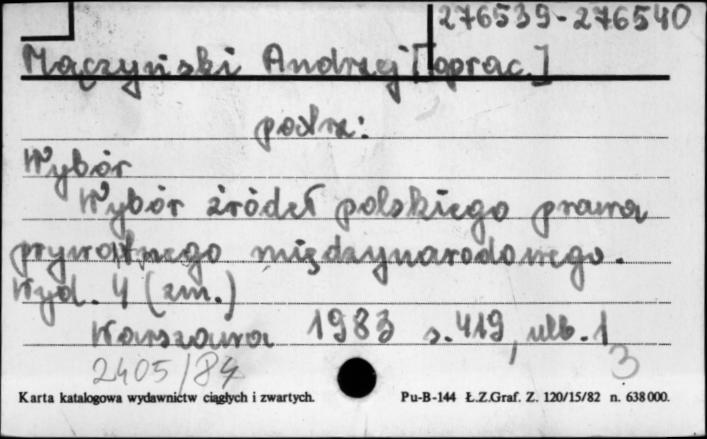 276539-276540
Mączyński Andrzej [oprac.]
patrz:
Wybór
Wybór źródeł polskiego prawa
prywatnego międzynarodowego.
Wyd. 4 (zm.)
Warszawa 1983 s. 419, ulb. 1
2405/84 3
Karta katalogowa wydawnictw ciągłych i zwartych. Pu-B-144 Ł.Z.Graf. Z. 120/15/82 n. 638000.